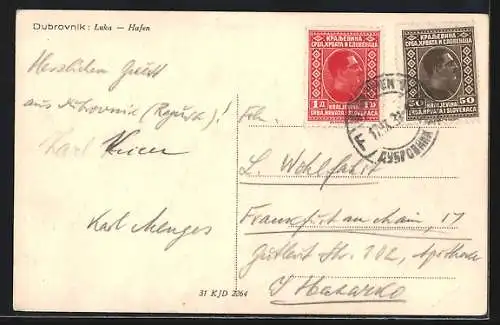 Dubrovnik: Luka — Hafen
Herzlichen Gruß
aus Dubrovnik (Ragusa)!
Karl
Karl Menges
31 KJD 2264
КРАЉЕВИНА
СРБА, ХРВАТА И СЛОВЕНАЦА
1Д 1D
KRALJEVINA
SRBA, HRVATA I SLOVENACA
КРАЉЕВИНА
СРБА, ХРВАТА И СЛОВЕНАЦА
50 50
KRALJEVINA
SRBA, HRVATA I SLOVENACA
ДУБРОВНИК
L. Wohlfahrt
Frankfurt am Main, 17
Gutleut Str. 102, Apotheke